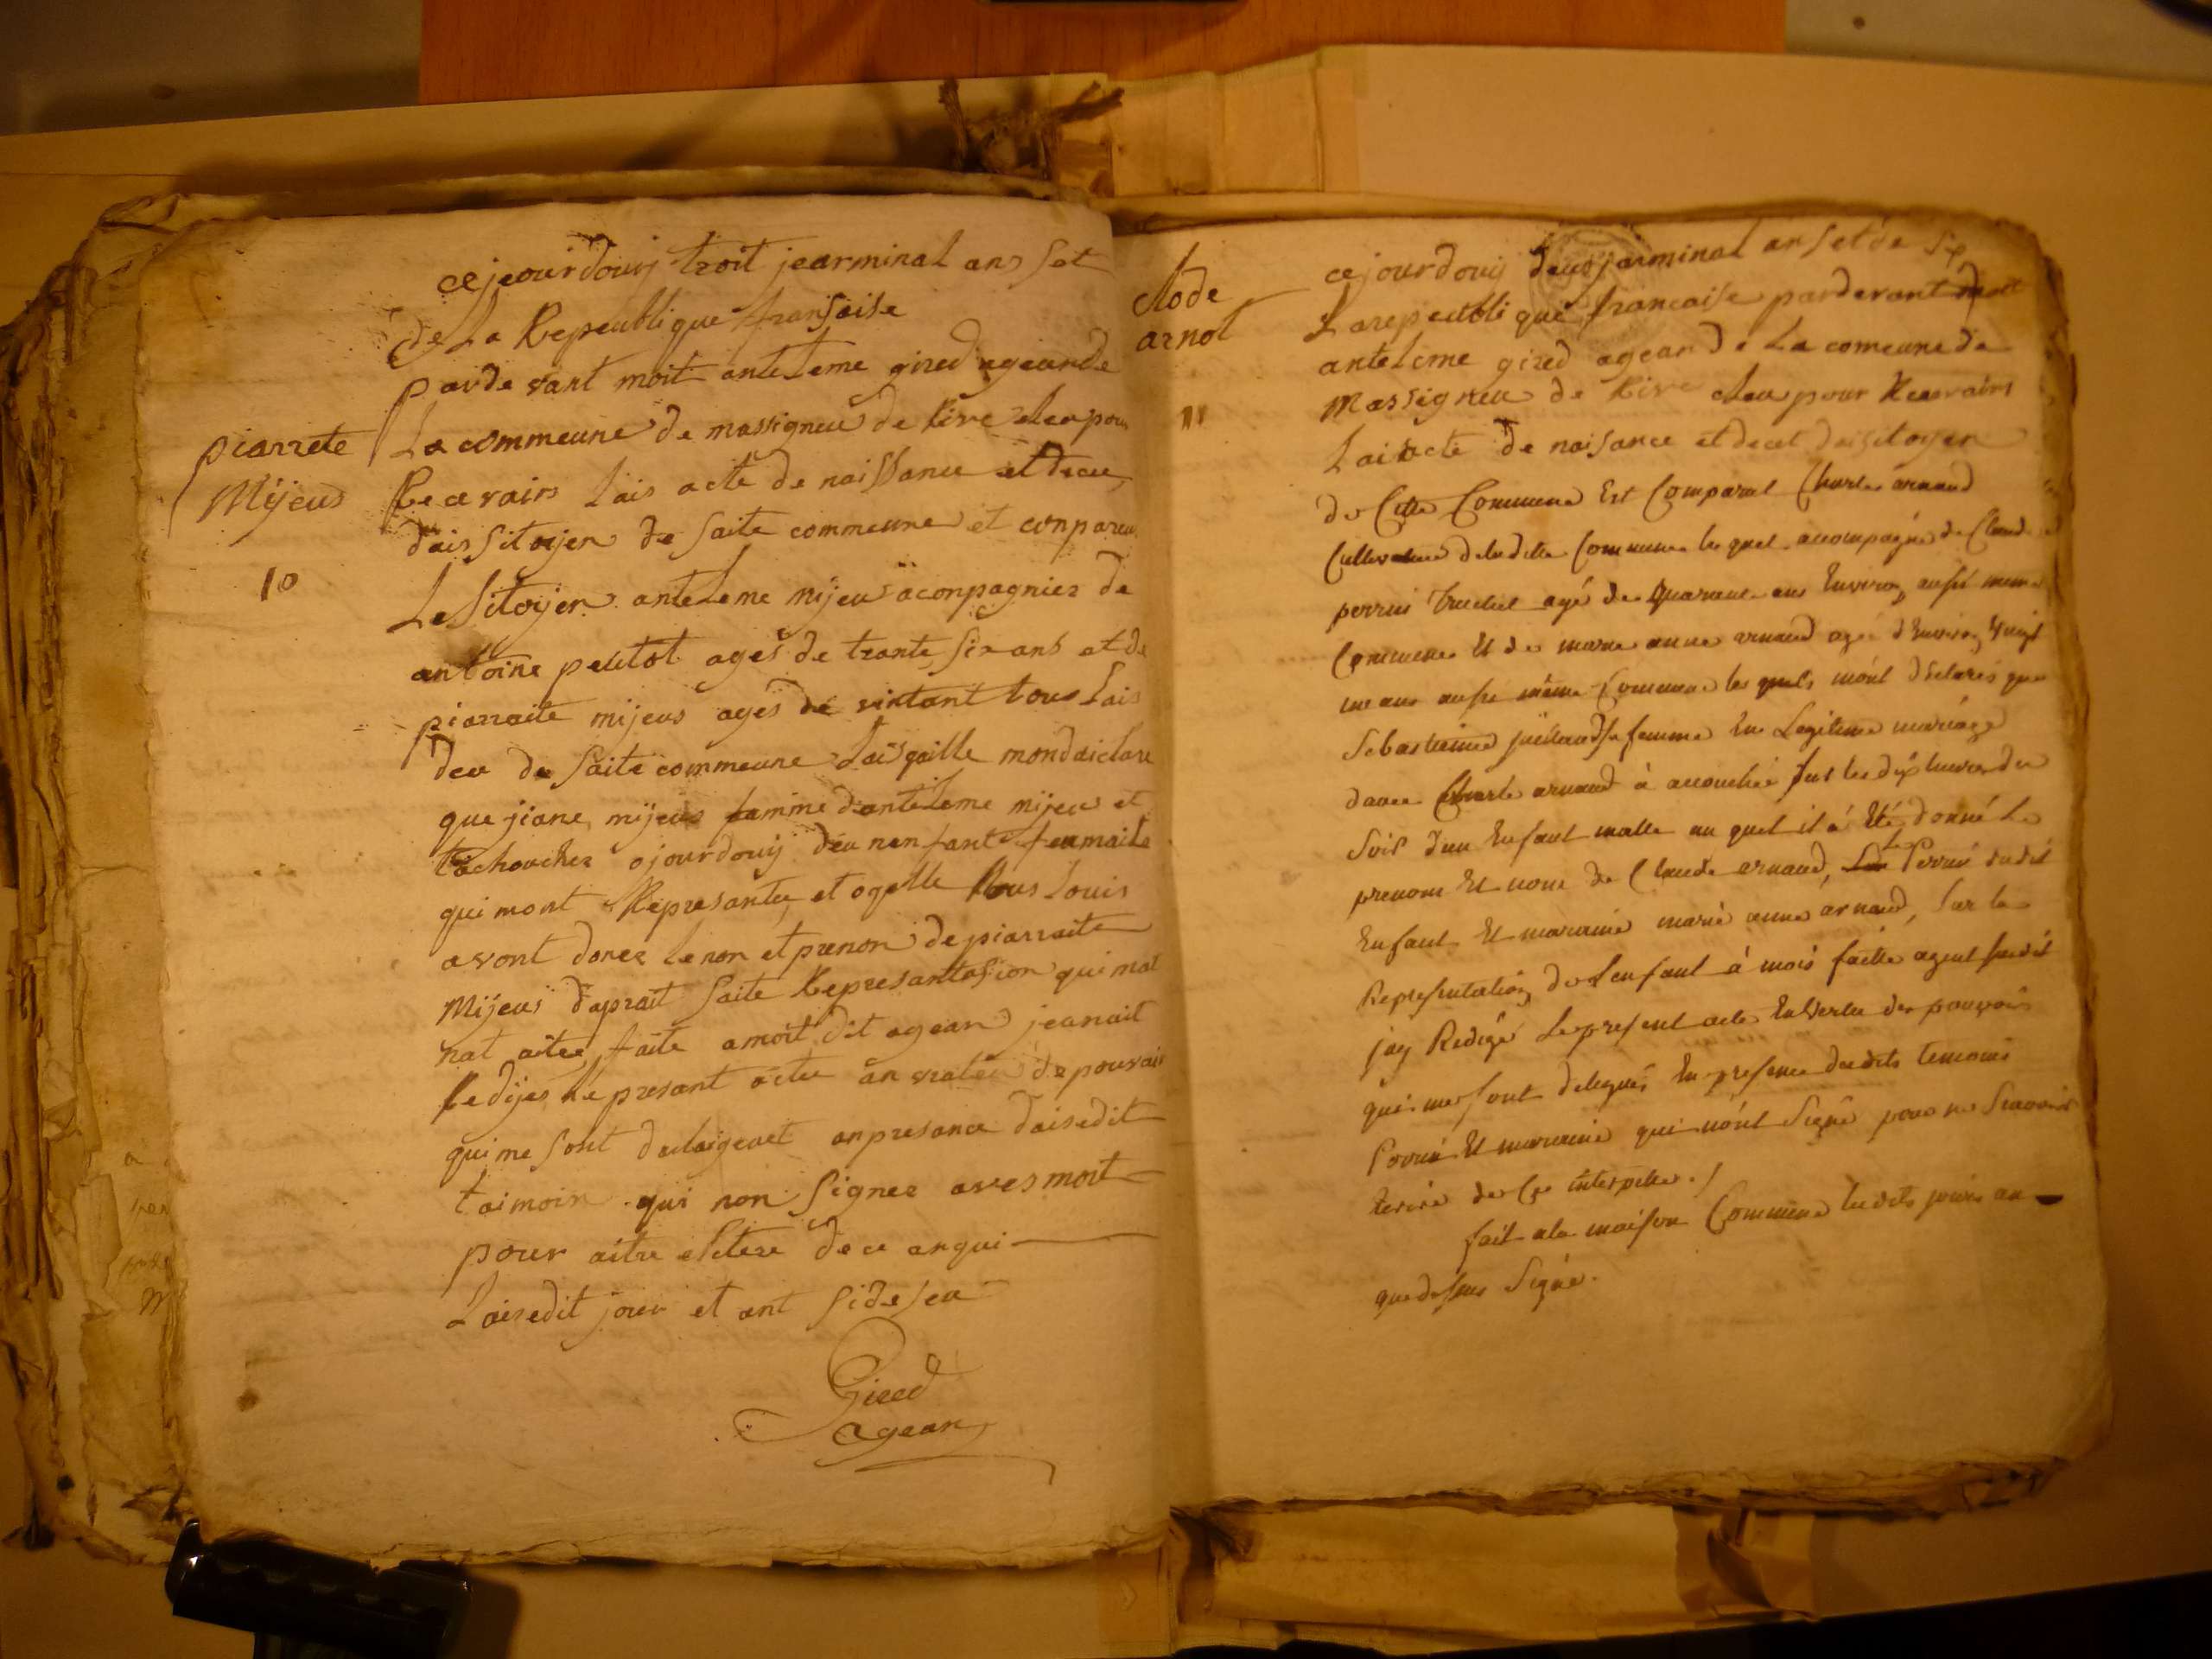 piarrete
Mijeus
10
cejeourdouij troit jearminal ans set
de La Repeublique fransaise
parde vant moit anteleme gired ageande
La commeune de massigneu de Rive eleu pour
Recevairs lais acte de naissance et deceu
dais sitoyen de saite commeune et conpareu
Le sitoyen anteleme mijeu aconpagniez de
antoine peutot ages de trante six ans et de
piarraite mijeus ages de vintant tous lais
deu de saite commeune laisqaille mondaiclare
que jiane mijeus famme danteleme mijeu et
tachouchez ojourdouij deu nenfant feumaile
qui mont Represantez et oqelle nous louis
avont donez le non et prenon de piarraite
Mijeus daprait saite Represantasion qui mat
nat aitez faite a moit dit agean jeanait
Redijes le presant acte an vrateu de pouvair
qui me sont delaigeaet an presance daisedit
taimoin qui non signez aves moit
pour aitre eletere de ce anqui
Laisedit jour et ant sideseu
Gired
agean
clode
arnot
11
cejourdouij deus jarminal an set de
La repeublique francaise pardevant moit
anteleme gired agean de La comeune de
Massigneu de Rive eleu pour Recevairs
Lai acte de naisance et decet dai sitoyen
de Cette Commune Est Comparut Charles arnaud
Cultivateur de ladite Commune lequel accompagné de Claude
perrin Truchet agé de Quarante ans Environ, aussi meme
Commune Et de marie anne arnaud agé d'Environ Vingt
une ans aussi même Commune les quels m'ont déclarés que
Sebastienne juillaud sa femme En Legitime mariage
davec Charle arnaud à accouchée sur les dix heures du
Soir d'un Enfant malle au quel il à Eté donné le
prenom Et nom de Claude arnaud, Le Perrin dudit
Enfant Et maraine marie anne arnaud, sur la
Representation de L'enfant à mois faitte agent susdit
jay Redigé Le present acte En Vertu des pouvoirs
qui me sont delegués En presence desdits temoins
Parrin Et marraine qui n'ont Signé pour ne Scavoir
Ecrire de Ce interpelle ./
fait a la maison Commune lesdits jours an
que dessus Signé.